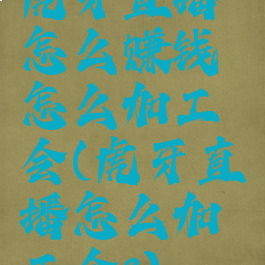 虎牙直播
怎么赚钱
怎么加工
会(虎牙直
播怎么加
工会?)